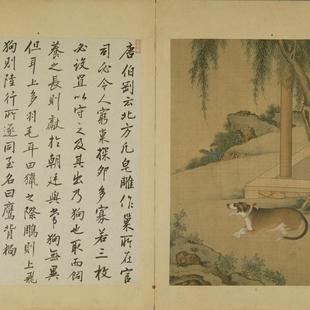 唐伯剛云北方凡皂雕作巢所在官
司必令人窮巢探卵多寡若三枚
必設置以守之及其出乃狗也取而飼
養之長則獻於朝廷與常狗無異
但耳上多羽毛耳田獵之際鵰則上飛
狗則陸行所逐同至名曰鷹背狗